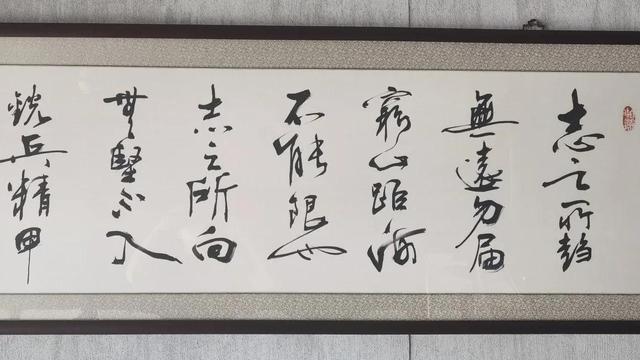 志之所趨
無遠勿届
窮山距海
不能限也
志之所向
無堅不入
銳兵精甲